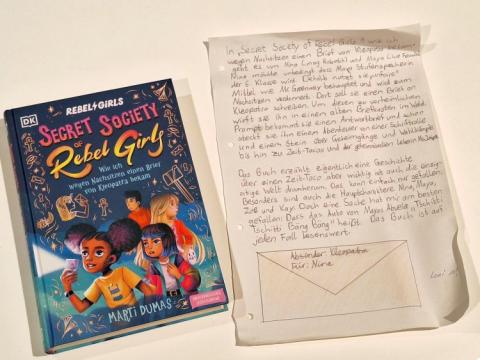 DK
REBEL GIRLS
SECRET SOCIETY
OF
Rebel Girls
Wie ich
wegen Nachsitzen einen Brief
von Kleopatra bekam
MARTI DUMAS
In „Secret Society of Rebel Girls" wie ich
wegen Nachsitzen einen Brief von Kleopatra bekam
geht es um Nina und Maya
Nina möchte unbedingt dass Maya Stufensprecherin
der 6. Klasse wird. Deshalb nutzt sie
Mittel, wie Mr. behauptet und wird zum
Nachsitzen verdonnert. Dort soll sie einen Brief an
Kleopatra schreiben. Um diesen zu verheimlichen
wirft sie ihn in einen alten Briefkasten im Wald.
Prompt bekommt sie einen Antwortbrief und schon
steckt sie in einem Abenteuer an einer
und einem Stein über Geheimgänge und Wahlkämpfe
bis hin zu Zeit-Tacos und der
Das Buch erzählt eigentlich eine Geschichte
über einen Zeit-Taco aber wichtig ist auch die
artige Welt drumherum. Das kann einfach nur gefallen.
Besonders sind auch die Hauptcharaktere Nina, Maya,
Zoë und Kayi. Doch eine Sache hat mir am besten
gefallen: Dass das Auto von Mayas Abuela „Tschitti
Tschitti Bäng Bäng" heißt. Das Buch ist auf
jeden Fall lesenswert.
Absender: Kleopatra
Für: Nina